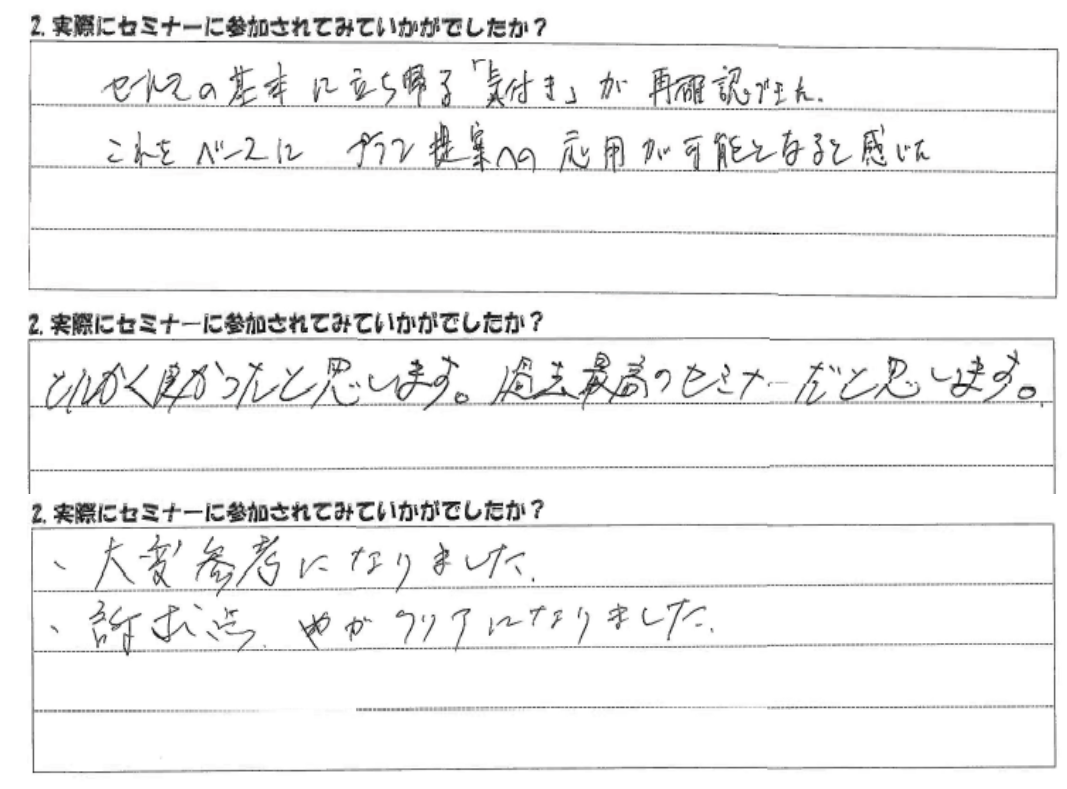 2. 実際にセミナーに参加されてみていかがでしたか？
セールスの基本に立ち帰る「気付き」が再確認できた.
これをベースに プラン提案への応用が可能となると感じた
2. 実際にセミナーに参加されてみていかがでしたか？
とにかく良かったと思います。過去最高のセミナーだと思います。
2. 実際にセミナーに参加されてみていかがでしたか？
、大変参考になりました.
、がクリアになりました.